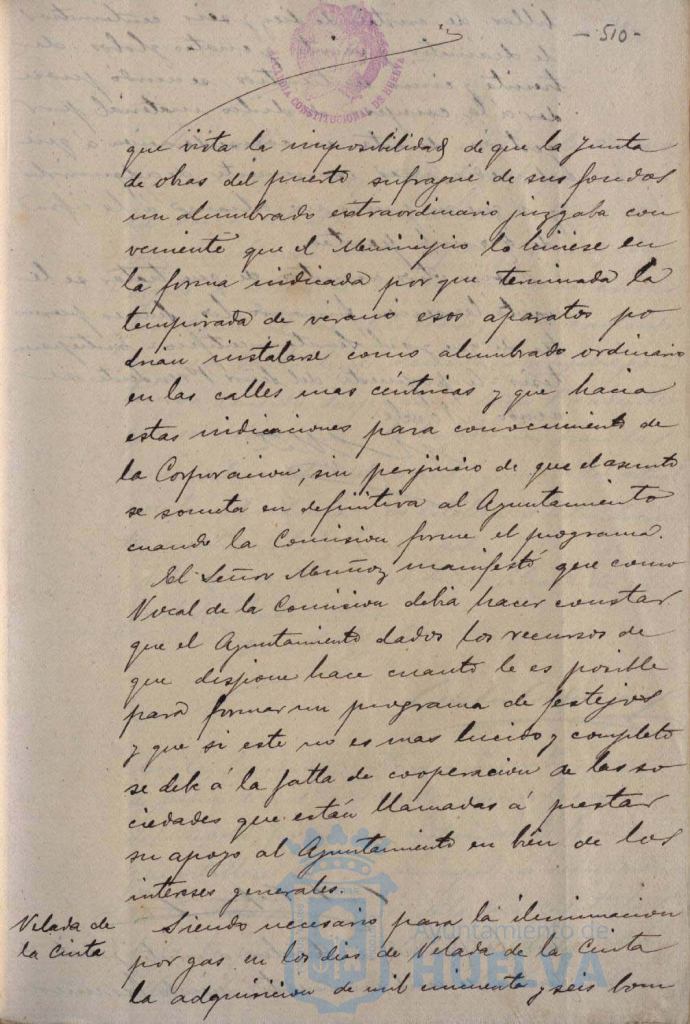 - 510 -
ALCALDIA CONSTITUCIONAL DE HUELVA
que vista la imposibilidad de que la Junta
de obras del puerto sufrague de sus fondos
un alumbrado extraordinario juzgaba con
veniente que el Municipio lo hiciese en
la forma indicada porque terminada la
temporada de verano esos aparatos po
drian instalarse como alumbrado ordinario
en las calles mas céntricas y que hacia
estas indicaciones para conocimiento de
la Corporacion, sin perjuicio de que el asunto
se someta en definitiva al Ayuntamiento
cuando la Comision forme el programa.
El Señor Muñoz manifestó que como
Vocal de la Comision debia hacer constar
que el Ayuntamiento dados los recursos de
que dispone hace cuanto le es posible
para formar un programa de festejos
y que si este no es mas lucido y completo
se debe á la falta de cooperacion de las so
ciedades que están llamadas á prestar
su apoyo al Ayuntamiento en bien de los
intereses generales.
Velada de
la Cinta
Siendo necesario para la iluminacion
por gas en los dias de Velada de la Cinta
la adquisicion de mil cincuenta y seis bom
Ayuntamiento de
HUELVA